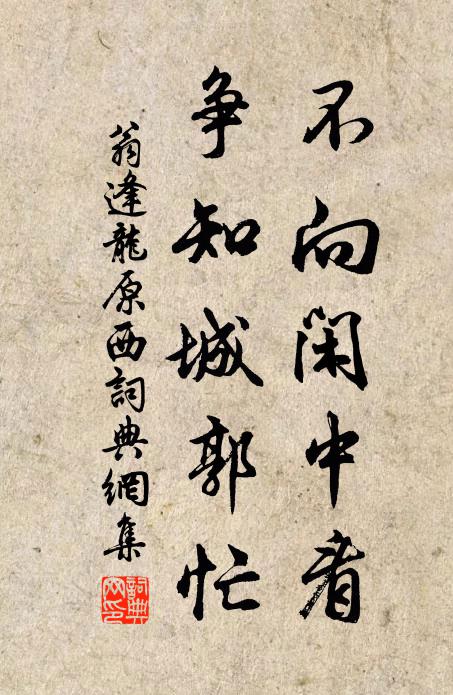 不向閑中看
争知城郭忙
翁逢龍原西詞典網集
詞典网印